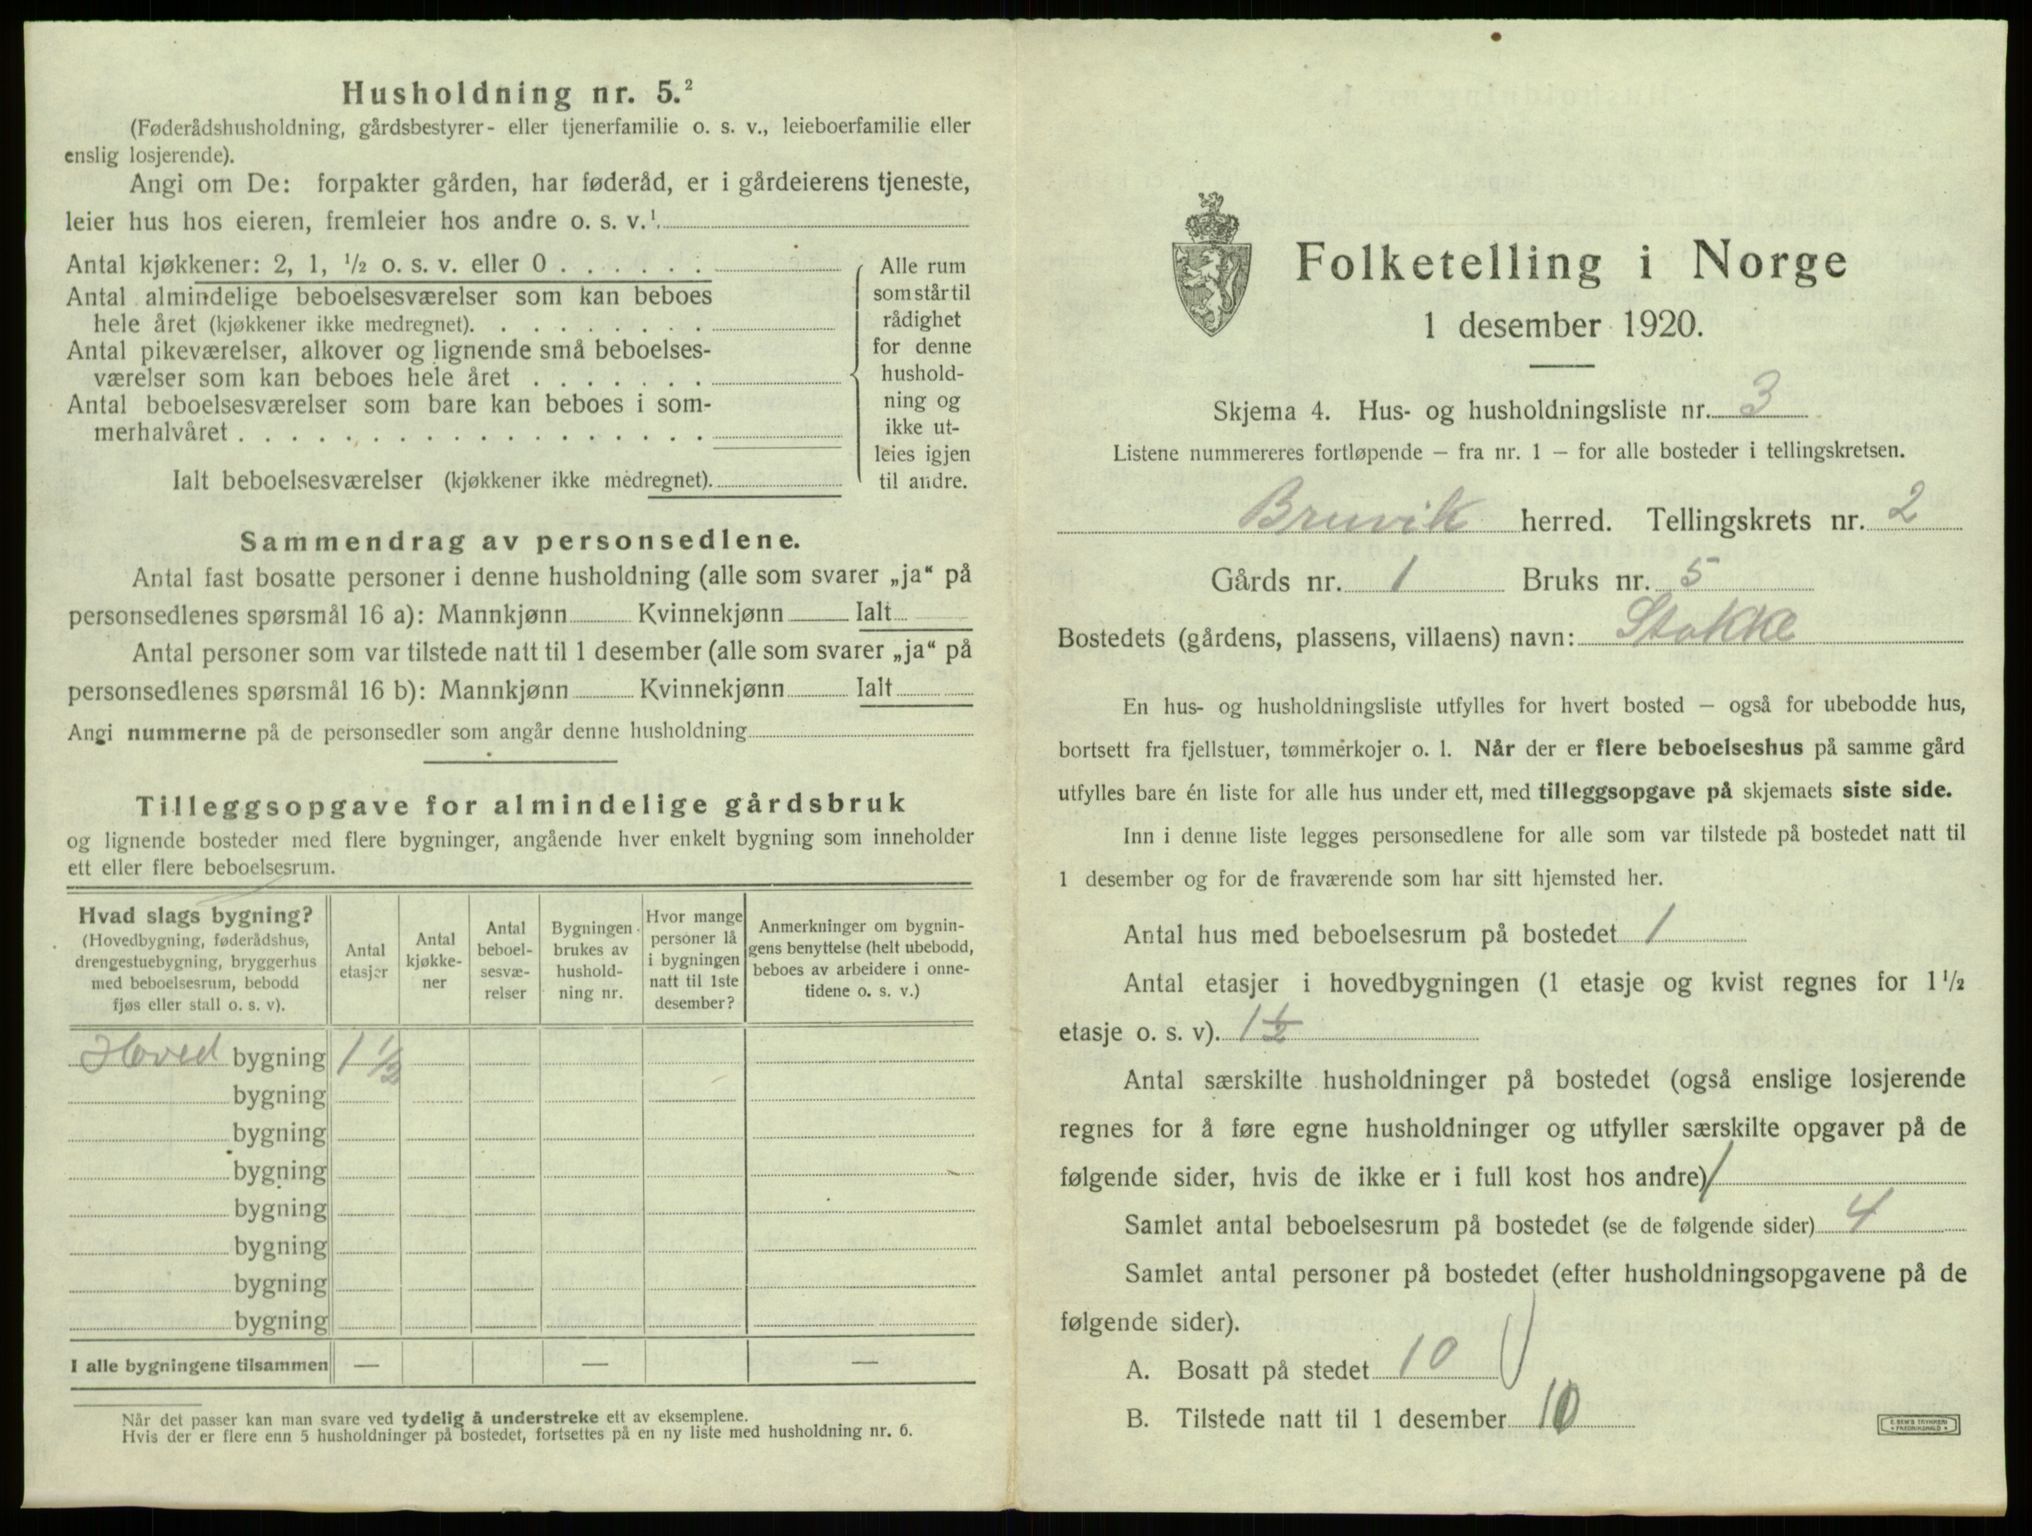 Husholdning nr. 5.²
(Føderådshusholdning, gårdsbestyrer- eller tjenerfamilie o. s. v., leieboerfamilie eller
enslig losjerende).
Angi om De: forpakter gården, har føderåd, er i gårdeierens tjeneste,
leier hus hos eieren, fremleier hos andre o. s. v.¹
Antal kjøkkener: 2, 1, ½ o. s. v. eller 0 . . . . . .
Antal almindelige beboelsesværelser som kan beboes
hele året (kjøkkener ikke medregnet). . . . . . . . .
Antal pikeværelser, alkover og lignende små beboelses-
værelser som kan beboes hele året . . . . . . .
Antal beboelsesværelser som bare kan beboes i som-
merhalvåret . . . . . . . . . . . . . . . . . .
Ialt beboelsesværelser (kjøkkener ikke medregnet).
Alle rum
som står til
rådighet
for denne
hushold-
ning og
ikke ut-
leies igjen
til andre.
Sammendrag av personsedlene.
Antal fast bosatte personer i denne husholdning (alle som svarer „ja“ på
personsedlenes spørsmål 16 a): Mannkjønn Kvinnekjønn Ialt
Antal personer som var tilstede natt til 1 desember (alle som svarer „ja“ på
personsedlenes spørsmål 16 b): Mannkjønn Kvinnekjønn Ialt
Angi nummerne på de personsedler som angår denne husholdning
Tilleggsopgave for almindelige gårdsbruk
og lignende bosteder med flere bygninger, angående hver enkelt bygning som inneholder
ett eller flere beboelsesrum.
Hvad slags bygning?
(Hovedbygning, føderådshus,
drengestuebygning, bryggerhus
med beboelsesrum, bebodd
fjøs eller stall o. s. v).
Antal
etasjer
Antal
kjøkke-
ner
Antal
beboel-
sesvæ-
relser
Bygningen
brukes av
hushold-
ning nr.
Hvor mange
personer lå
i bygningen
natt til 1ste
desember?
Anmerkninger om bygnin-
gens benyttelse (helt ubebodd,
beboes av arbeidere i onne-
tidene o. s. v.)
Hoved bygning 1 ½
bygning
bygning
bygning
bygning
bygning
bygning
bygning
I alle bygningene tilsammen — — —
Når det passer kan man svare ved tydelig å understreke ett av eksemplene.
Hvis der er flere enn 5 husholdninger på bostedet, fortsettes på en ny liste med husholdning nr. 6.
Folketelling i Norge
1 desember 1920.
Skjema 4. Hus- og husholdningsliste nr. 3
Listene nummereres fortløpende – fra nr. 1 – for alle bosteder i tellingskretsen.
Bruvik herred. Tellingskrets nr. 2
Gårds nr. 1 Bruks nr. 5
Bostedets (gårdens, plassens, villaens) navn: Stokke
En hus- og husholdningsliste utfylles for hvert bosted – også for ubebodde hus,
bortsett fra fjellstuer, tømmerkojer o. l. Når der er flere beboelseshus på samme gård
utfylles bare én liste for alle hus under ett, med tilleggsopgave på skjemaets siste side.
Inn i denne liste legges personsedlene for alle som var tilstede på bostedet natt til
1 desember og for de fraværende som har sitt hjemsted her.
Antal hus med beboelsesrum på bostedet 1
Antal etasjer i hovedbygningen (1 etasje og kvist regnes for 1 ½
etasje o. s. v). 1 ½
Antal særskilte husholdninger på bostedet (også enslige losjerende
regnes for å føre egne husholdninger og utfyller særskilte opgaver på de
følgende sider, hvis de ikke er i full kost hos andre) 1
Samlet antal beboelsesrum på bostedet (se de følgende sider) 4
Samlet antal personer på bostedet (efter husholdningsopgavene på de
følgende sider).
A. Bosatt på stedet 10
B. Tilstede natt til 1 desember 10